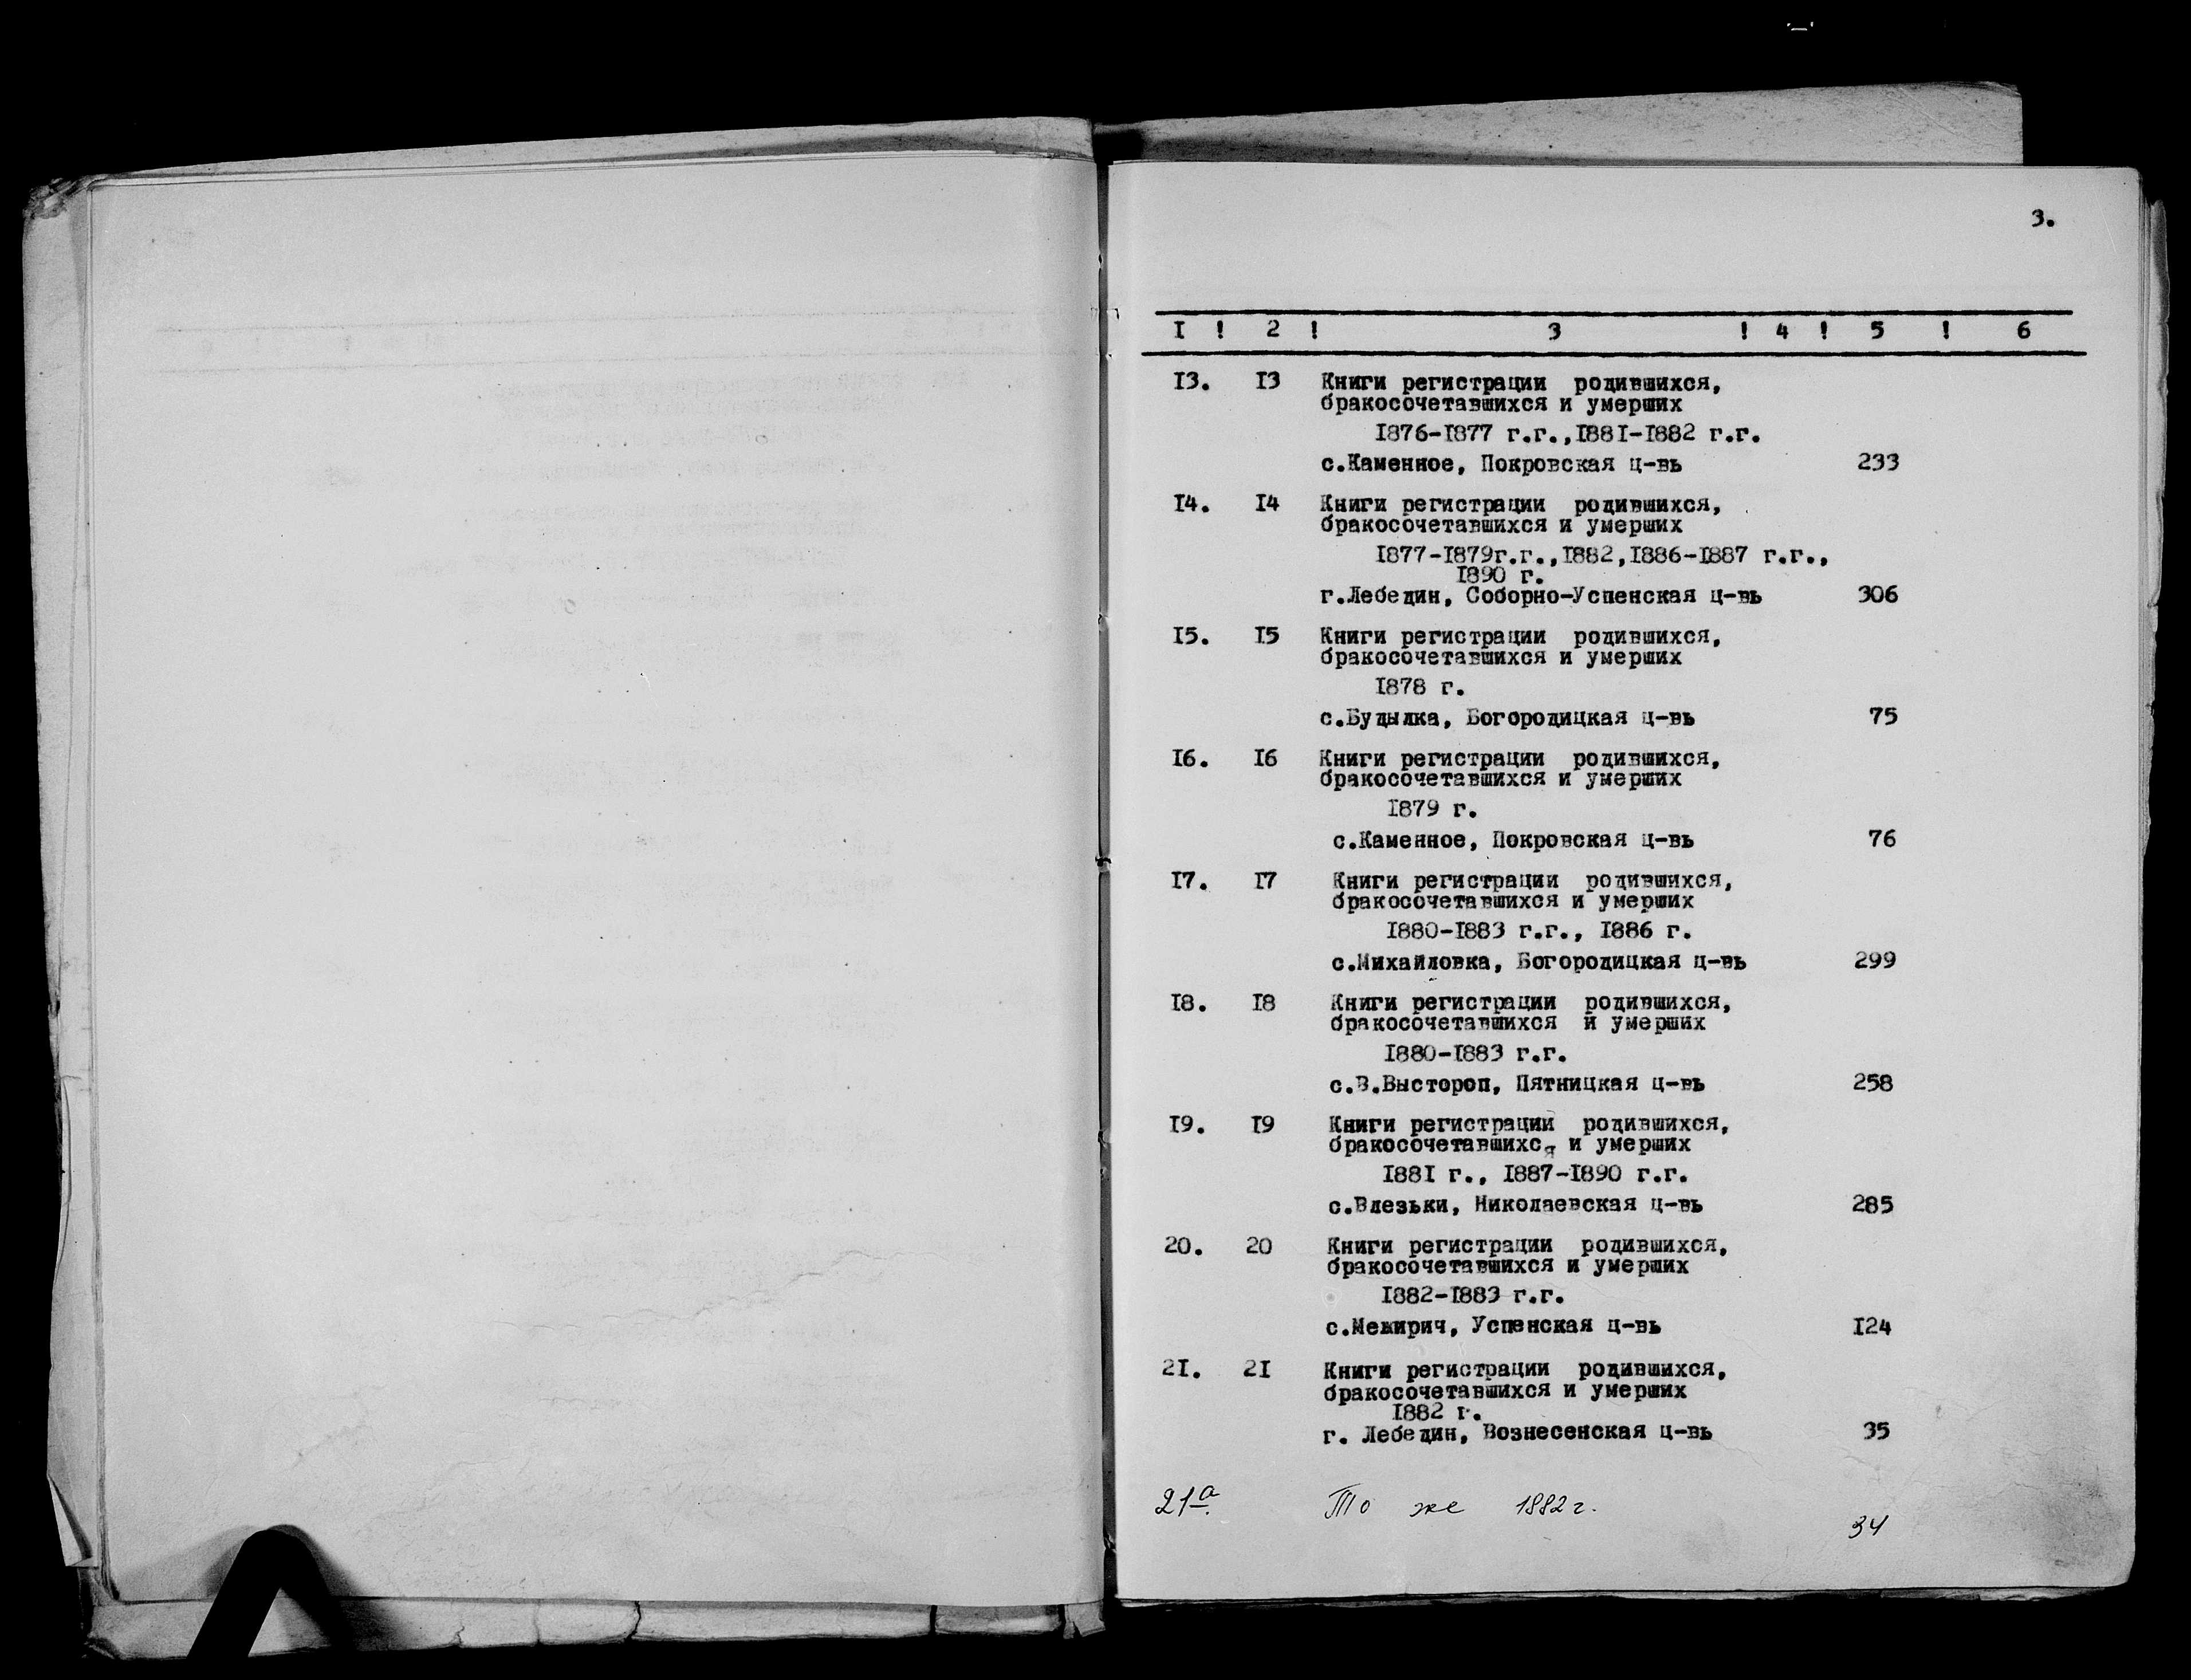 3.
I ! 2 ! 3 ! 4 ! 5 ! 6
I3. I3 Книги регистрации родившихся,
бракосочетавшихся и умерших
I876-I877 г.г.,I88I-I882 г.г.
с.Каменное, Покровская ц-вь 233
I4. I4 Книги регистрации родившихся,
бракосочетавшихся и умерших
I877-I879г.г.,I882,I886-I887 г.г.,
I890 г.
г.Лебедин, Соборно-Успенская ц-вь 306
I5. I5 Книги регистрации родившихся,
бракосочетавшихся и умерших
I878 г.
с.Будылка, Богородицкая ц-вь 75
I6. I6 Книги регистрации родившихся,
бракосочетавшихся и умерших
I879 г.
с.Каменное, Покровская ц-вь 76
I7. I7 Книги регистрации родившихся,
бракосочетавшихся и умерших
I880-I883 г.г., I886 г.
с.Михайловка, Богородицкая ц-вь 299
I8. I8 Книги регистрации родившихся,
бракосочетавшихся и умерших
I880-I883 г.г.
с.В.Выстороп, Пятницкая ц-вь 258
I9. I9 Книги регистрации родившихся,
бракосочетавшихся и умерших
I88I г., I887-I890 г.г.
с.Влезьки, Николаевская ц-вь 285
20. 20 Книги регистрации родившихся,
бракосочетавшихся и умерших
I882-I883 г.г.
с.Межирич, Успенская ц-вь I24
2I. 2I Книги регистрации родившихся,
бракосочетавшихся и умерших
I882 г.
г. Лебедин, Вознесенская ц-вь 35
21а. То же 1882г.
34